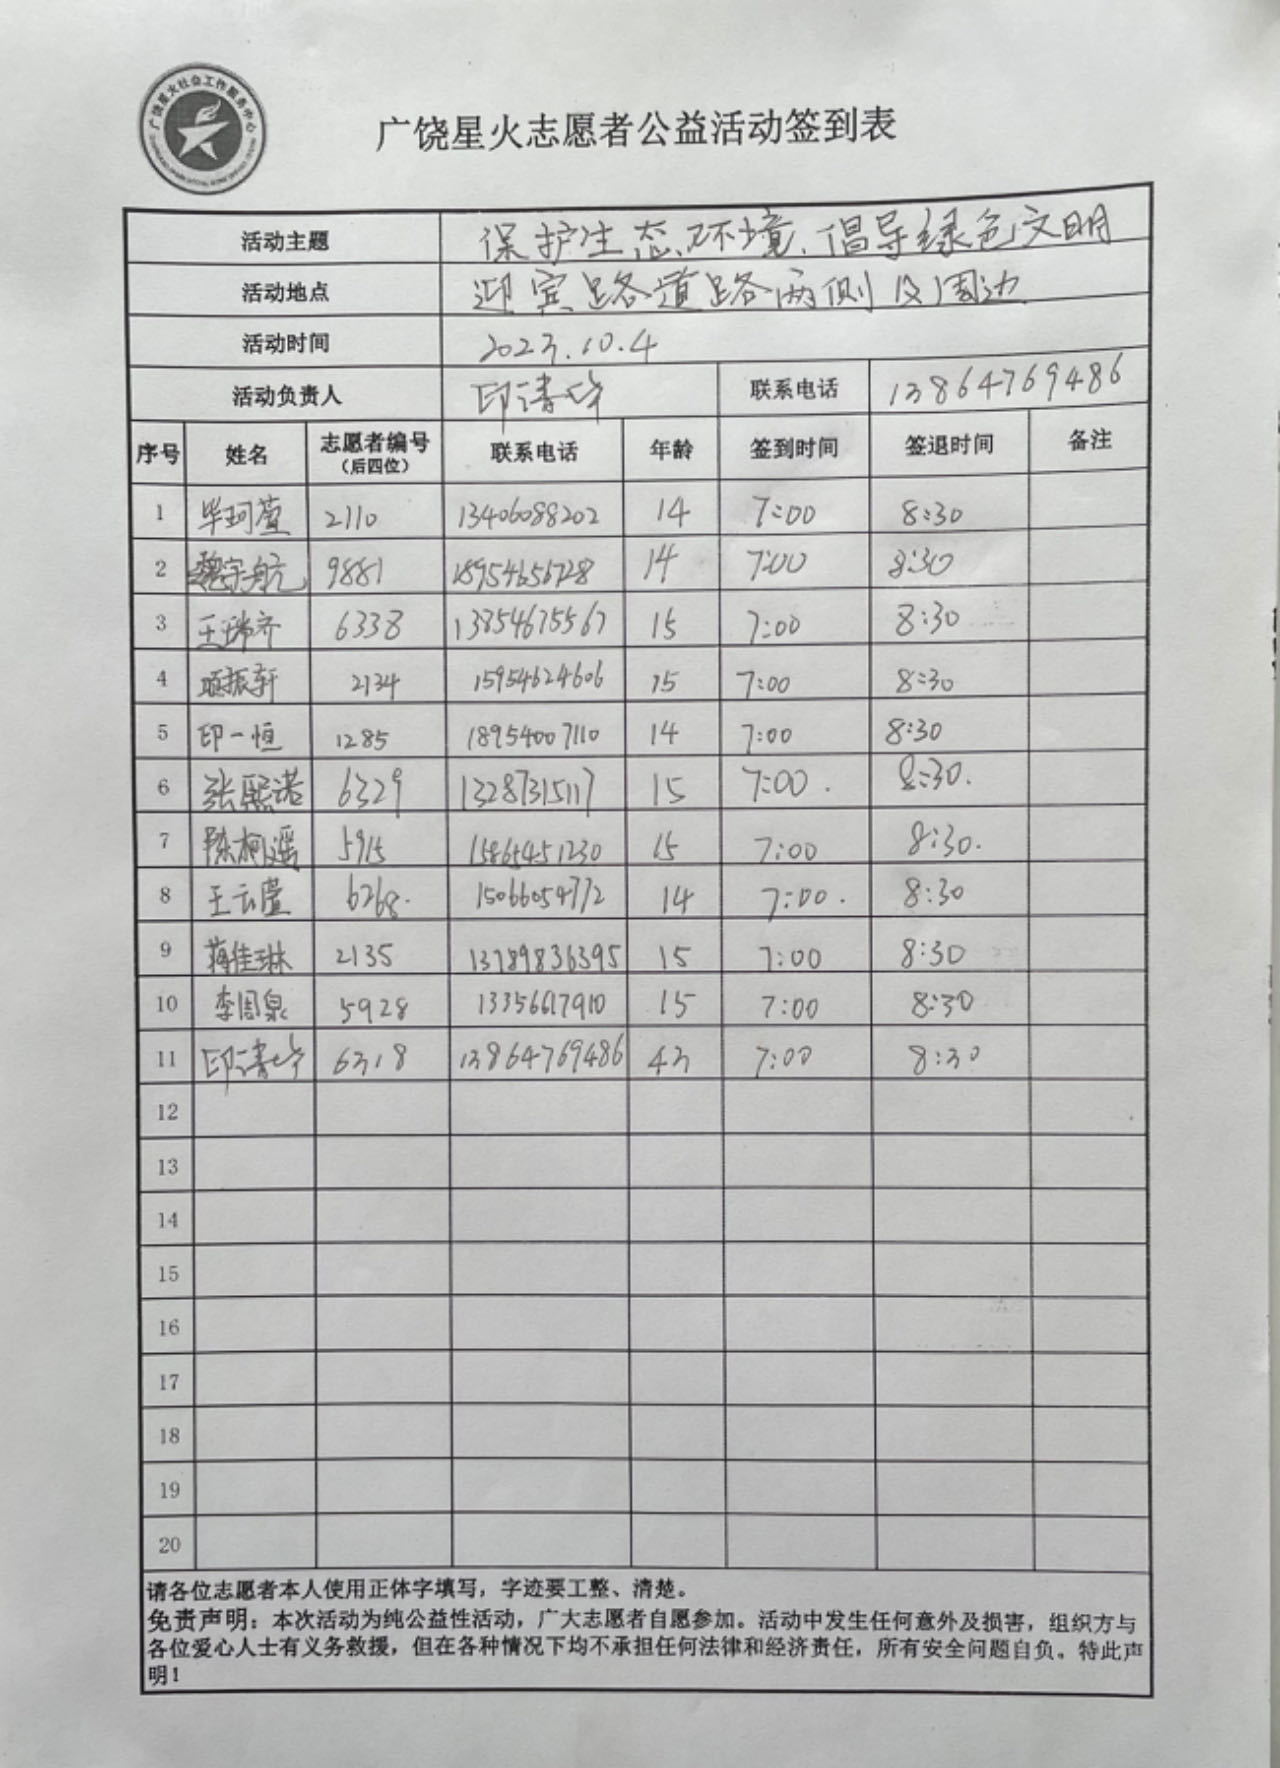 广饶星火社会工作服务中心
广饶星火志愿者公益活动签到表
活动主题 保护生态环境、倡导绿色文明
活动地点 迎宾路道路两侧及周边
活动时间 2023.10.4
活动负责人 印清华 联系电话 13864769486
序号 姓名 志愿者编号（后四位） 联系电话 年龄 签到时间 签退时间 备注
1 毕珂萱 2110 13406088202 14 7:00 8:30
2 魏宇航 9881 18954656728 14 7:00 8:30
3 王瑞齐 6338 13854675567 15 7:00 8:30
4 项振轩 2134 15954624606 15 7:00 8:30
5 印一恒 1285 18954007110 14 7:00 8:30
6 张熙诺 6329 13287315117 15 7:00. 8:30.
7 陈柯遥 5915 15865451230 15 7:00 8:30.
8 王云萱 6268. 15066054772 14 7:00. 8:30
9 蒋佳琳 2135 13789836395 15 7:00 8:30
10 李周泉 5928 13356617910 15 7:00 8:30
11 印清华 6318 13864769486 43 7:00 8:30
12
13
14
15
16
17
18
19
20
请各位志愿者本人使用正体字填写，字迹要工整、清楚。
免责声明：本次活动为纯公益性活动，广大志愿者自愿参加。活动中发生任何意外及损害，组织方与
各位爱心人士有义务救援，但在各种情况下均不承担任何法律和经济责任，所有安全问题自负。特此声
明！